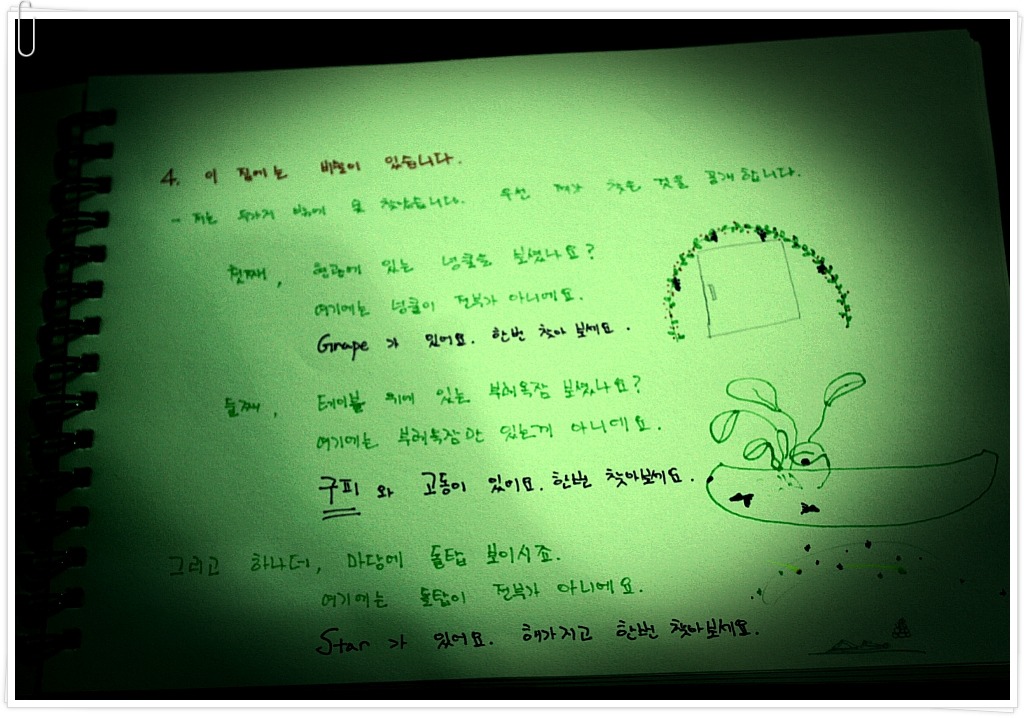 4. 이 집에는 비밀이 있습니다.
- 저는 두가지 밖에 못 찾았습니다. 우선 제가 찾은 것을 공개합니다.
첫째, 현관에 있는 넝쿨을 보셨나요?
여기에는 넝쿨이 전부가 아니에요.
Grape 가 있어요. 한번 찾아보세요.
둘째, 테이블 위에 있는 부레옥잠 보셨나요?
여기에는 부레옥잠만 있는게 아니에요.
구피 와 고동이 있어요. 한번 찾아보세요.
그리고 하나더, 마당에 돌탑 보이시죠.
여기에는 돌탑이 전부가 아니에요.
Star 가 있어요. 해가지고 한번 찾아보세요.